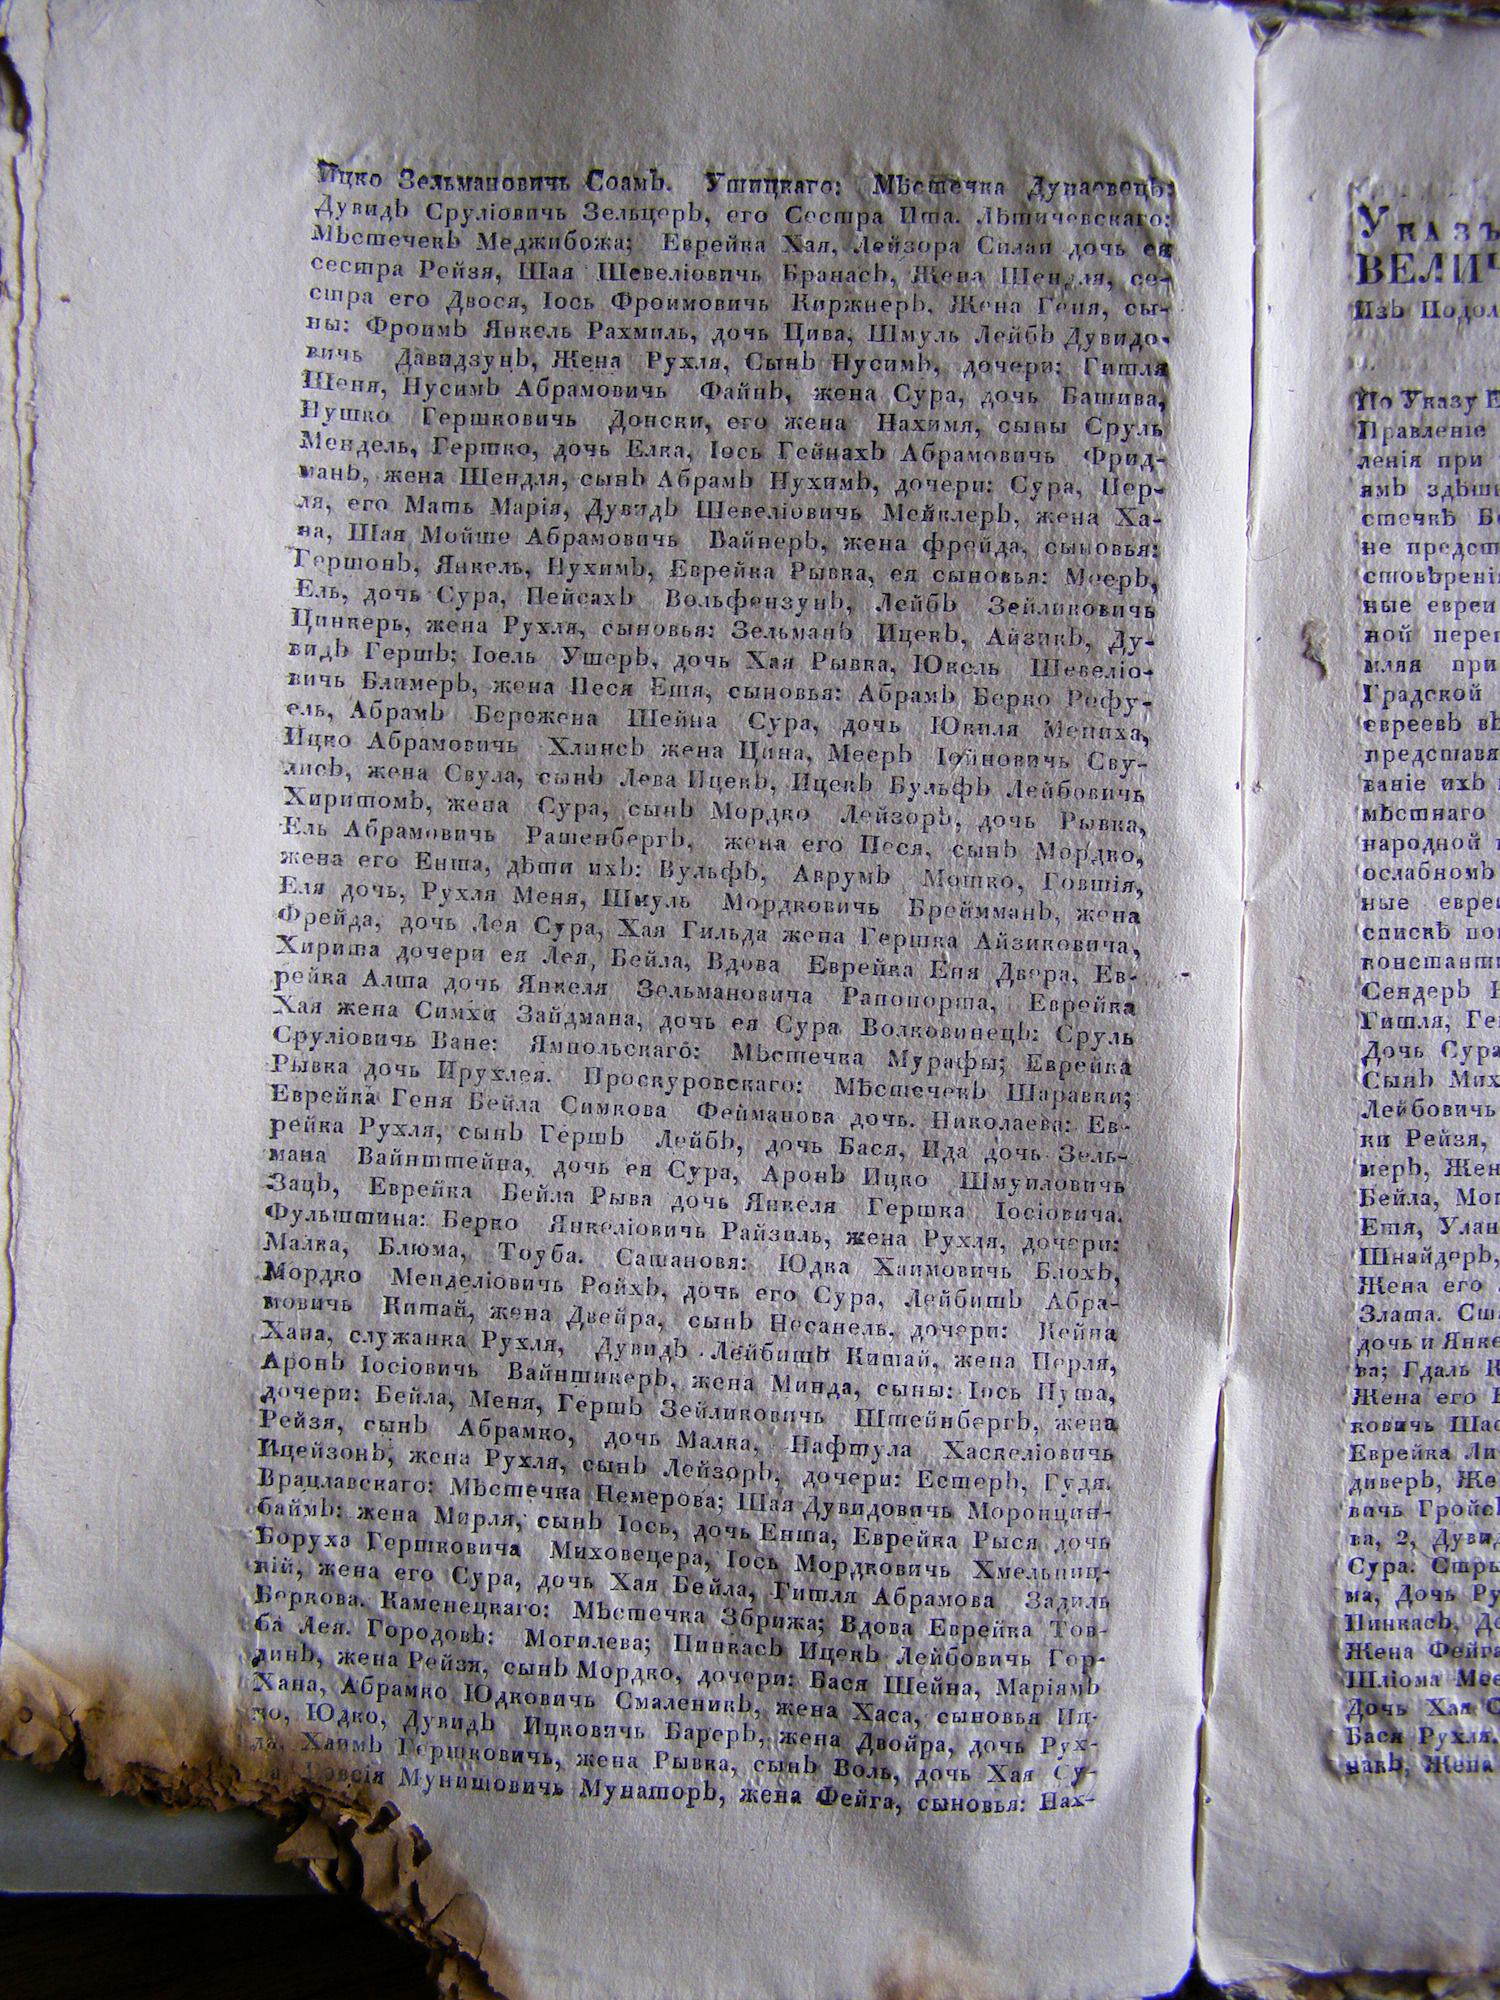 Ицко Зельмановичь Соамъ. Ушицкаго: Мѣстечка Дунаевецъ:
Дувидъ Сруліовичь Зельцеръ, его Сестра Ита. Лѣтичевскаго:
Мѣстечекъ Меджибожа; Еврейка Хая, Лейзора Силаи дочь ея
сестра Рейзя, Шая Шевеліовичь Бранасъ, Жена Шендля, се-
стра его Двося, Іось Фроимовичь Киржнеръ, Жена Геня, сы-
ны: Фроимъ Янкель Рахмиль, дочь Цива, Шмуль Лейбъ Дувидо-
вичь Давидзунъ, Жена Рухля, Сынъ Нусимъ, дочери: Гитля
Шеня, Нусимъ Абрамовичь Файнъ, жена Сура, дочь Башива,
Нушко Гершковичь Донски, его жена Нахимя, сыны Сруль
Мендель, Гершко, дочь Елка, Іось Гейнахъ Абрамовичь Фрид-
манъ, жена Шендля, сынъ Абрамъ Нухимъ, дочери: Сура, Пер-
ля, его Мать Марія, Дувидъ Шевеліовичь Мейклеръ, жена Ха-
на, Шая Мойше Абрамовичь Вайнеръ, жена фрейда, сыновья:
Гершонъ, Янкель, Нухимъ, Еврейка Рывка, ея сыновья: Мееръ,
Ель, дочь Сура, Пейсахъ Вольфензунъ, Лейбъ Зейликовичь
Цинкеръ, жена Рухля, сыновья: Зельманъ Ицекъ, Айзикъ, Ду-
видъ Гершъ; Іоель Ушеръ, дочь Хая Рывка, Юкель Шевеліо-
вичь Блимеръ, жена Песя Етя, сыновья: Абрамъ Берко Рефу-
ель, Абрамъ Бережена Шейна Сура, дочь Юкиля Мениха,
Ицко Абрамовичь Хлинсъ жена Цина, Мееръ Іойновичь Сву-
лисъ, жена Свула, сынъ Лева Ицекъ, Ицекъ Вульфъ Лейбовичь
Хиритомъ, жена Сура, сынъ Мордко Лейзоръ, дочь Рывка,
Ель Абрамовичь Рашенбергъ, жена его Песя, сынъ Мордко,
жена его Ента, дѣти ихъ: Вульфъ, Аврумъ Мошко, Говшія,
Еля дочь, Рухля Меня, Шмуль Мордковичь Бреймманъ, жена
Фрейда, дочь Лея Сура, Хая Гильда жена Гершка Айзиковича,
Хирита дочери ея Лея, Бейла, Вдова Еврейка Еня Двера, Ев-
рейка Алта дочь Янкеля Зельмановича Рапопорта, Еврейка
Хая жена Симхи Зайдмана, дочь ея Сура Волковинецъ: Сруль
Сруліовичь Ване: Ямпольскаго: Мѣстечка Мурафы; Еврейка
Рывка дочь Ирухлея. Проскуровскаго: Мѣстечекъ Шаравки;
Еврейка Геня Бейла Симкова Фейманова дочь. Николаева: Ев-
рейка Рухля, сынъ Гершъ Лейбъ, дочь Бася, Ида дочь Зель-
мана Вайнштейна, дочь ея Сура, Аронъ Ицко Шмуиловичь
Зацъ, Еврейка Бейла Рыва дочь Янкеля Гершка Іосіовича.
Фульштина: Берко Янкеліовичь Райзиль, жена Рухля, дочери:
Малка, Блюма, Тоуба. Сатановя: Юдка Хаимовичь Блохъ,
Мордко Менделіовичь Ройхъ, дочь его Сура, Лейбишъ Абра-
мовичь Китай, жена Двейра, сынъ Несанель, дочери: Кейна
Хана, служанка Рухля, Дувидъ Лейбишъ Китай, жена Перля,
Аронъ Іосіовичь Вайншикеръ, жена Минда, сыны: Іось Пута,
дочери: Бейла, Меня, Гершъ Зейликовичь Штейнбергъ, жена
Рейзя, сынъ Абрамко, дочь Малка, Нафтула Хаскеліовичь
Ицейзонъ, жена Рухля, сынъ Лейзоръ, дочери: Естеръ, Гудя.
Врацлавскаго: Мѣстечка Немерова; Шая Дувидовичь Моронцин-
баймъ: жена Мирля, сынъ Іось, дочь Ента, Еврейка Рыся дочь
Боруха Гершковича Миховецера, Іось Мордковичь Хмельниц-
кій, жена его Сура, дочь Хая Бейла, Гитля Абрамова Задиль
Беркова. Каменецкаго: Мѣстечка Збрижа; Вдова Еврейка Тов-
ба Лея. Городовъ: Могилева; Пинкасъ Ицекъ Лейбовичь Гор-
динъ, жена Рейзя, сынъ Мордко, дочери: Бася Шейна, Маріямъ
Хана, Абрамко Юдковичь Смаленикъ, жена Хаса, сыновья Иц-
ко, Юдко, Дувидъ Ицковичь Бареръ, жена Двойра, дочь Рух-
ля, Хаимъ Гершковичь, жена Рывка, сынъ Воль, дочь Хая Су-
ра, Мунишовичь Мунаторъ, жена Фейга, сыновья: Нах-
Указъ
ВЕЛИЧ
Изъ Подол
По Указу Е
Правленіе
ленія при
ямъ здѣши
стечкѣ Бе
не предст
стовѣренія
ные евреи
ной переп
мляя при
Градской
евреевъ въ
представя
ваніе ихъ
мѣстнаго
народной
ослабномъ
ные еврей
спискѣ по
константи
Сендеръ
Гитля, Ге
Дочь Сура
Сынъ Мих
Лейбовичь
ки Рейзя,
меръ, Жен
Бейла, Мог
Етя, Улан
Шнайдеръ,
Жена его
Злата. Ст
дочь и Янке
ва; Гдаль К
Жена его
ковичь Шас
Еврейка Ли
диверъ, Же
вичь Гройс
ва, 2, Дувид
Сура. Стры
ма, Дочь Ру
Пинкасъ, До
Жена Фейга
Шліома Мее
Дочь Хая С
Бася Рухля.
накъ, Жена